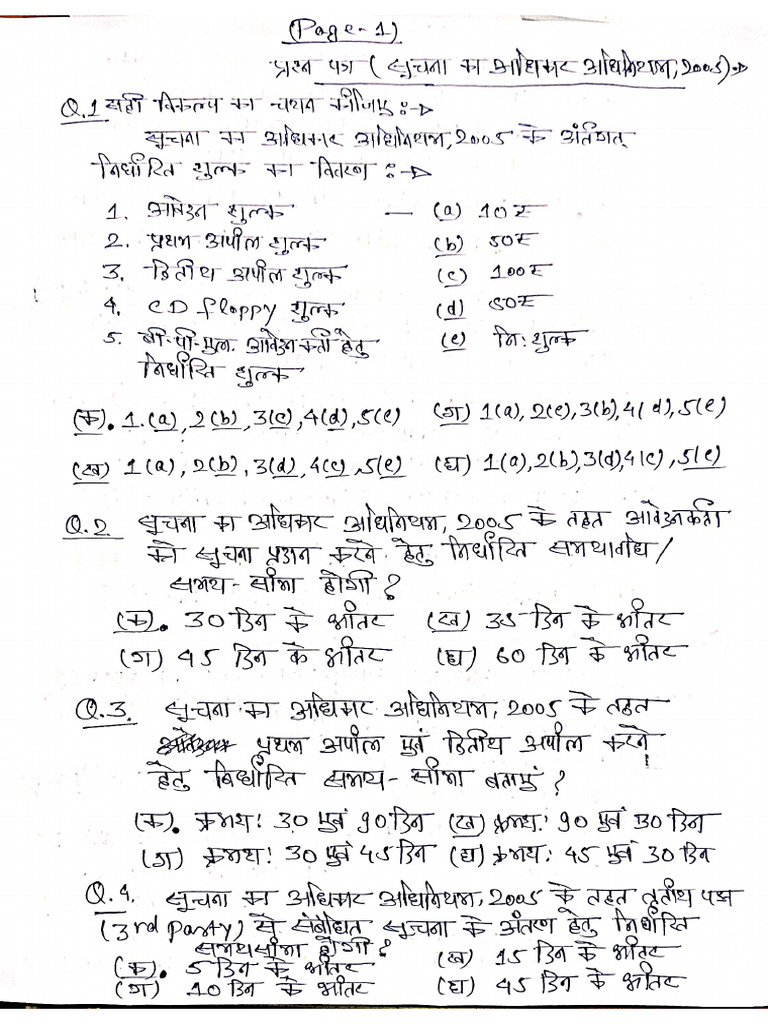 (Page-1)
प्रश्न पत्र ( सूचना का अधिकार अधिनियम, 2005)→
Q.1 सही विकल्प का चयन कीजिए :→
सूचना का अधिकार अधिनियम, 2005 के अंर्तगत्
निर्धारित शुल्क का वितरण :→
1. आवेदन शुल्क — (a) 10रु
2. प्रथम अपील शुल्क (b) 50रु
3. द्वितीय अपील शुल्क (c) 100रु
4. CD floppy शुल्क (d) 50रु
5. बी.पी.एल. आवेदनकर्ता हेतु (e) नि:शुल्क
निर्धारित शुल्क
(क). 1.(a), 2(b), 3(c), 4(d), 5(e) (ग) 1(a), 2(c), 3(b), 4(d), 5(e)
(ख) 1(a), 2(b), 3(d), 4(c), 5(e) (घ) 1(a), 2(b), 3(d), 4(c), 5(e)
Q.2 सूचना का अधिकार अधिनियम, 2005 के तहत आवेदनकर्ता
को सूचना प्रदान करने हेतु निर्धारित समयावधि/
समय-सीमा होगी?
(क). 30 दिन के भीतर (ख) 35 दिन के भीतर
(ग) 45 दिन के भीतर (घ) 60 दिन के भीतर
Q.3. सूचना का अधिकार अधिनियम, 2005 के तहत
प्रथम अपील एवं द्वितीय अपील करने
हेतु निर्धारित समय-सीमा बताएं?
(क). क्रमश: 30 एवं 90 दिन (ख) क्रमश: 90 एवं 30 दिन
(ग) क्रमश: 30 एवं 45 दिन (घ) क्रमश: 45 एवं 30 दिन
Q.4. सूचना का अधिकार अधिनियम, 2005 के तहत तृतीय पक्ष
(3rd party) से संबंधित सूचना के अंतरण हेतु निर्धारित
समयसीमा होगी?
(क). 5 दिन के भीतर (ख) 15 दिन के भीतर
(ग) 10 दिन के भीतर (घ) 45 दिन के भीतर